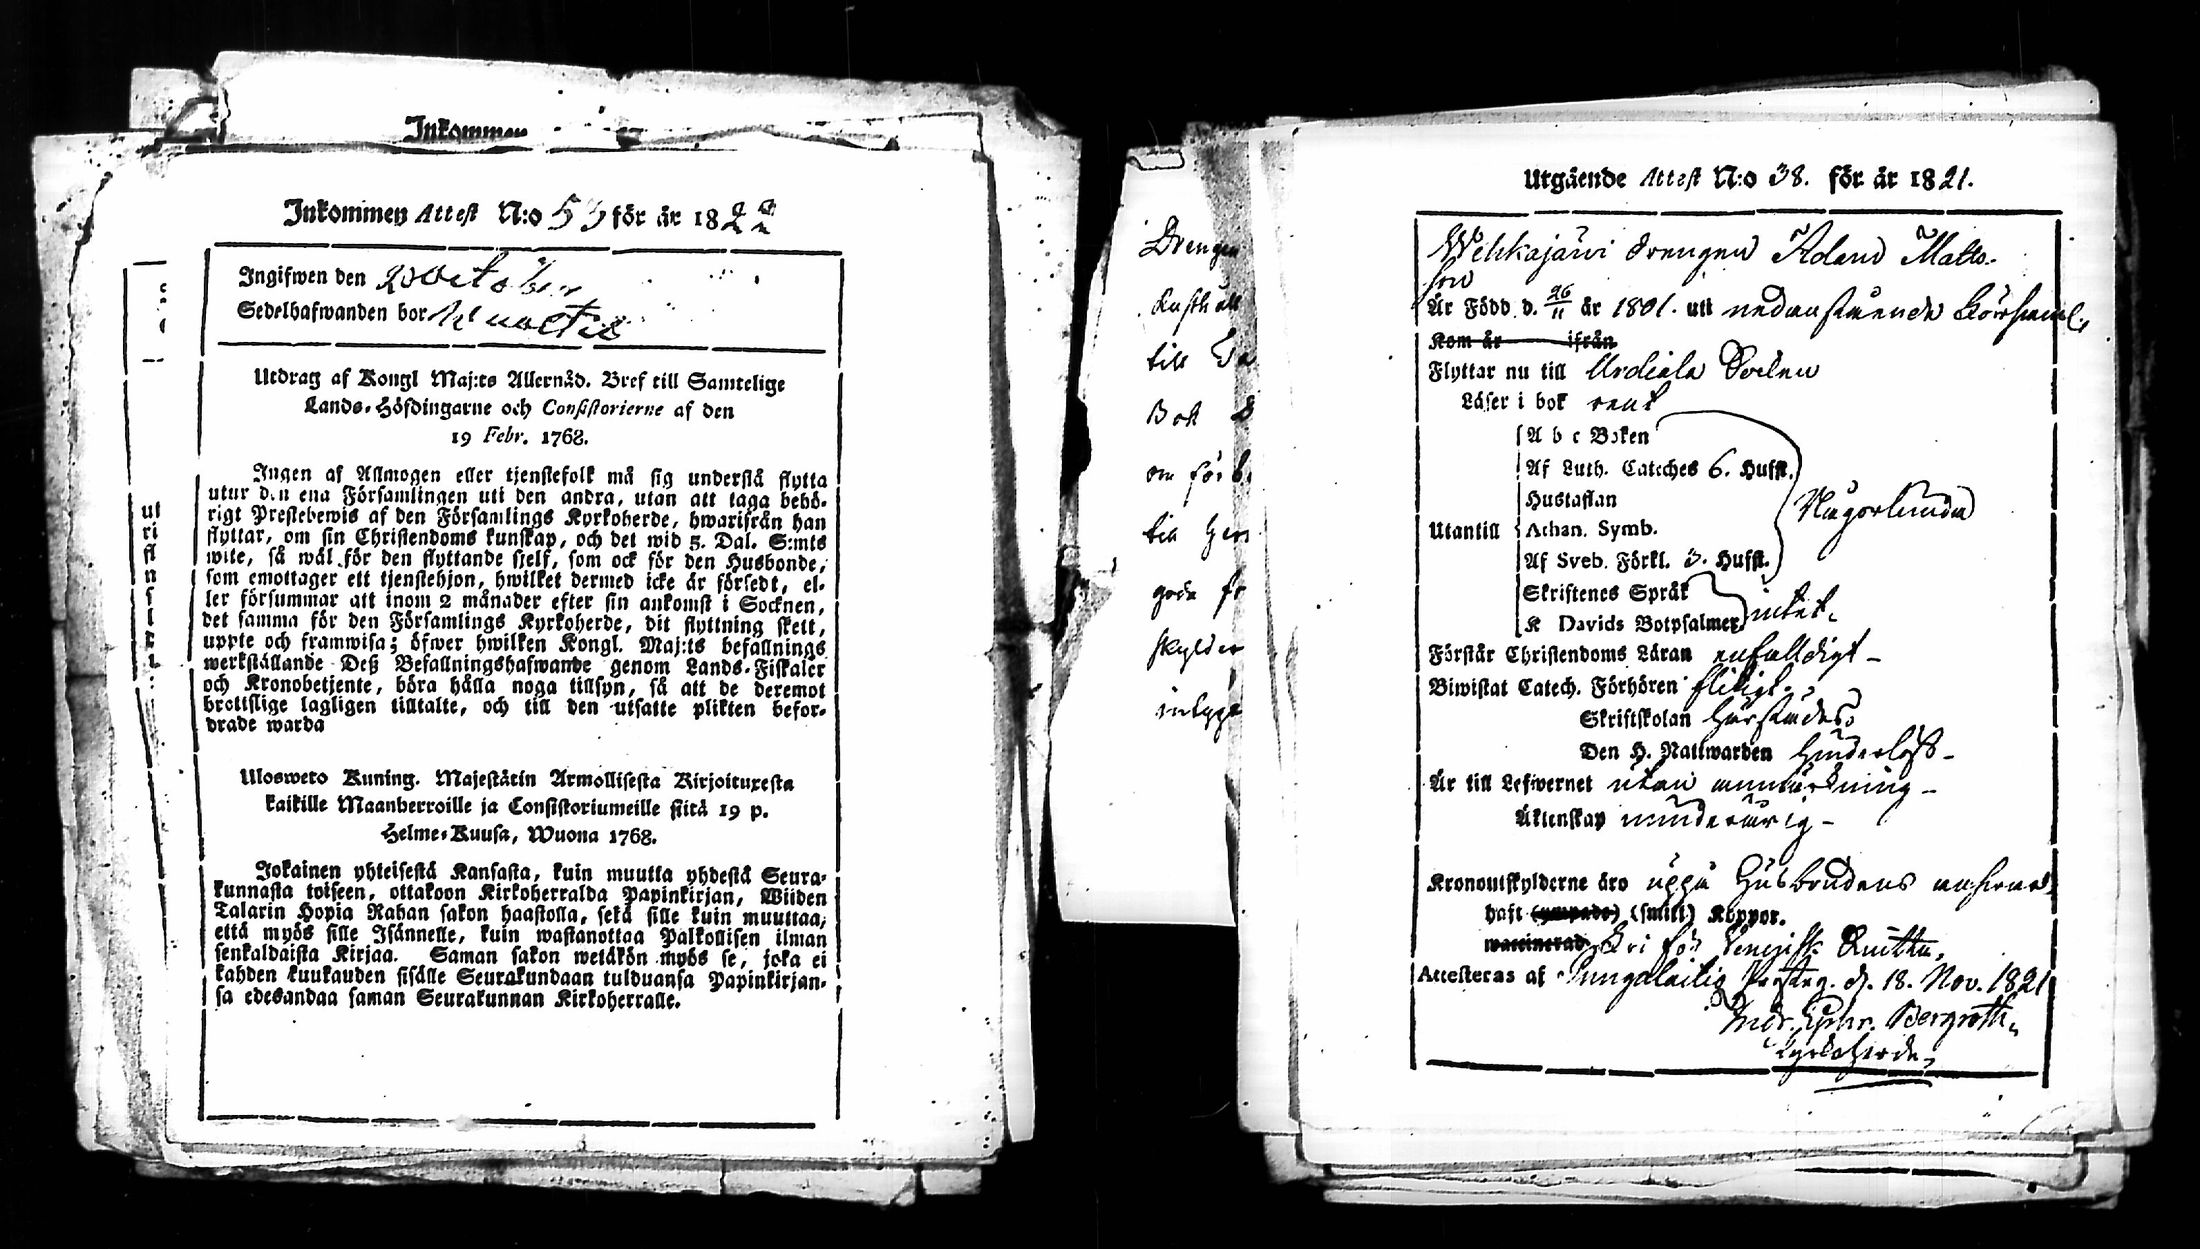 Inkommen
Inkommen Attest N:o 53 för år 1822
Ingifwen den october
Sedelhafwanden bor
Utdrag af Kongl Maj:ts Allernåd. Bref till Samtelige
Lands-Höfdingarne och Consistorierne af den
19 Febr. 1768.
Ingen af Allmogen eller tjenstefolk må sig understå flytta
utur den ena Församlingen uti den andra, utan att taga behö-
rigt Prestebewis af den Församlings Kyrkoherde, hwarifrån han
flyttar, om sin Christendoms kunskap, och det wid 5. Dal. S:mts
wite, så wäl för den flyttande sjelf, som ock för den Husbonde,
som emottager ett tjenstehjon, hwilket dermed icke är försedt, el-
ler försummar att inom 2 månader efter sin ankomst i Socknen,
det samma för den Församlings Kyrkoherde, dit flyttning skett,
uppte och framwisa; öfwer hwilken Kongl. Maj:ts befallnings
werkställande Deß Befallningshafwande genom Lands-Fiskaler
och Kronobetjente, böra hålla noga tillsyn, så att de deremot
brottslige lagligen tilltalte, och till den utsatte plikten befor-
drade warda
Ulosweto Kuning. Majestätin Armollisesta Kirjoituxesta
kaikille Maanherroille ja Consistoriumeille siitä 19 p.
Helme-Kuusa, Wuona 1768.
Jokainen yhteisestä Kansasta, kuin muutta yhdestä Seura-
kunnasta toiseen, ottakoon Kirkoherralda Papinkirjan, Wiiden
Talarin Hopia Rahan sakon haastolla, sekä sille kuin muuttaa,
että myös sille Isännelle, kuin wastanottaa Palkollisen ilman
senkaldaista Kirjaa. Saman sakon wetäkön myös se, joka ei
kahden kuukauden sisälle Seurakundaan tulduansa Papinkirjan-
sa edesandaa saman Seurakunnan Kirkoherralle.
Drengen
till
Bok
om förb
till
goda
skylder
intyga
Utgående Attest N:o 38. för år 1821.
Wehkajärvi drengen Adam Matts-
son
Är Född d. 26/11 år 1801. uti nedanstående Församl.
Kom år ifrån
Flyttar nu till Urdiala Socken
Läser i bok rent
A b c Boken
Af Luth. Cateches 6. Hufst.
Hustaflan
Utantill Athan. Symb. Någorlunda
Af Sveb. Förkl. 3. Hufst.
Skriftenes Språk
K Davids Botpsalmer intet.
Förstår Christendoms Läran enfaldigt -
Biwistat Catech. Förhören flitigt.
Skriftskolan härstädes
Den H. Nattwarden hinderlöst -
Är till Lefwernet utan anmärkning -
Äktenskap minderårig -
Kronoutskylderne äro uppå Husbondens
haft (ympade) (smitt) Koppor.
waccinerad Fri för Venerisk Smitta,
Attesteras af Kungalaitio Prästeg. d. 18. Nov. 1821
Bergroth
Kyrkoherde